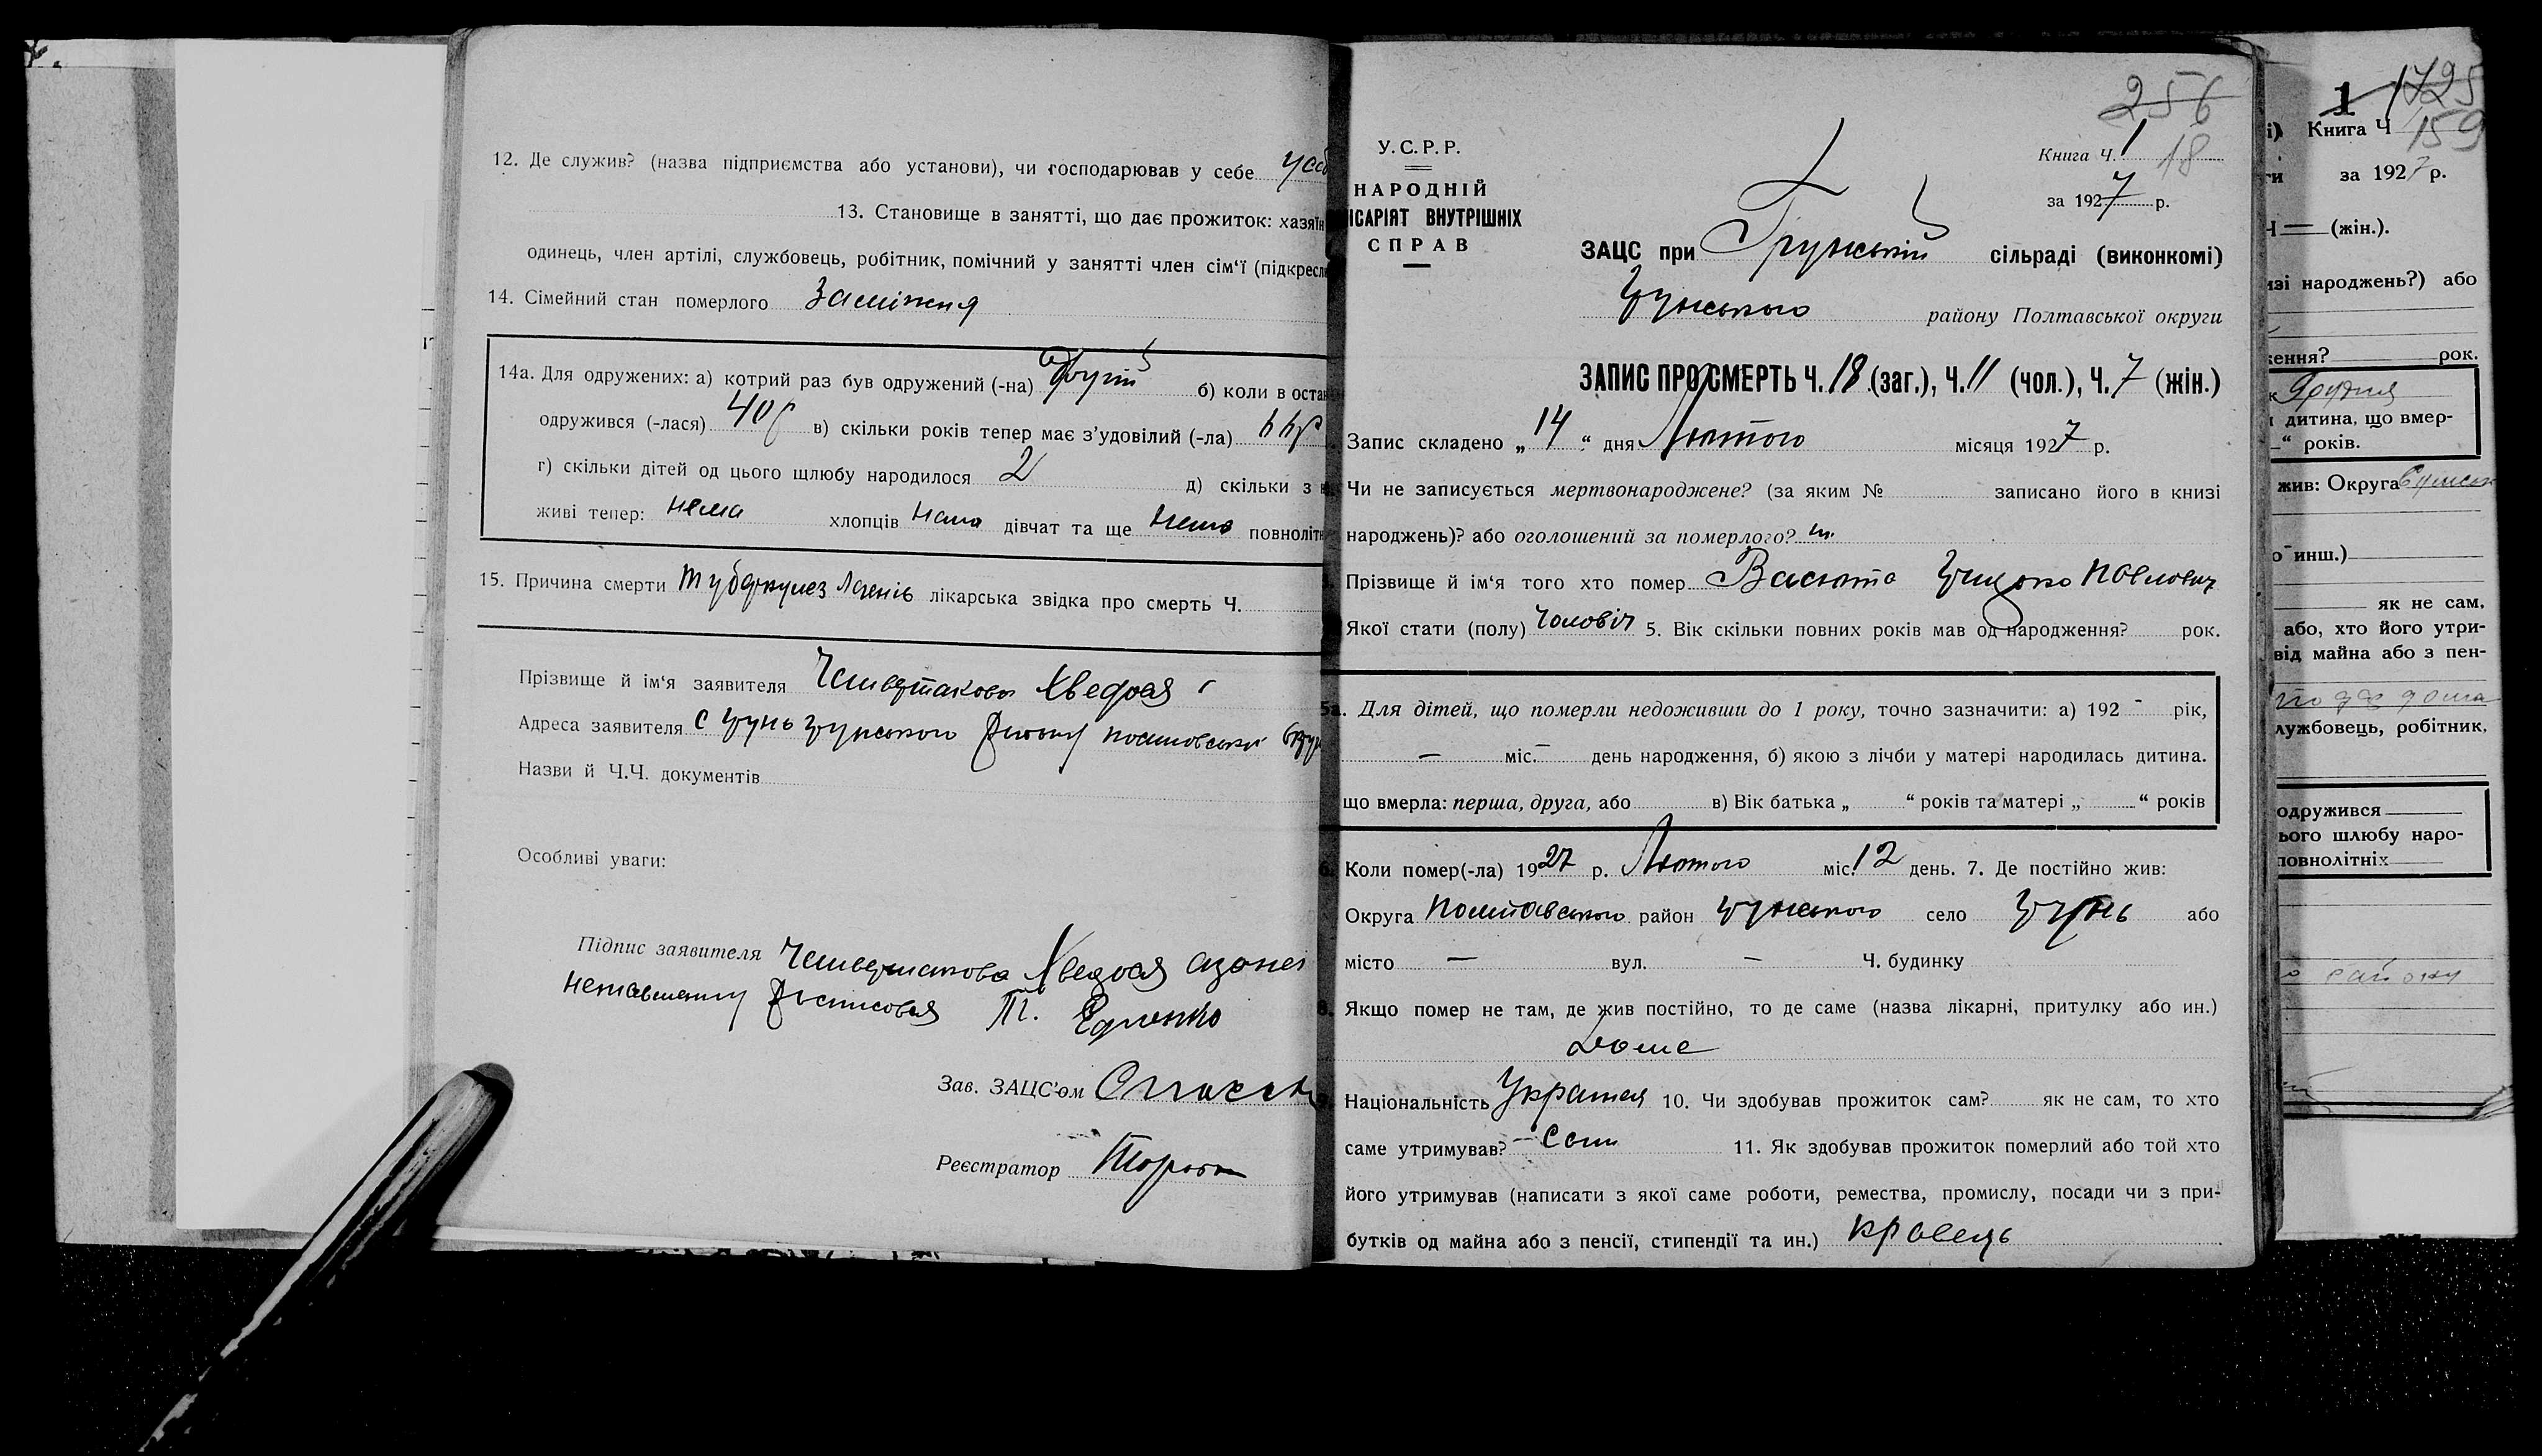 12. Де служив? (назва підприємства або установи), чи господарював у себе
13. Становище в занятті, що дає прожиток: хазяїн
одинець, член артілі, службовець, робітник, помічний у занятті член сім'ї (підкресл
14. Сімейний стан померлого Заміжня
14а. Для одружених: а) котрий раз був одружений (-на) другий б) коли в оста
одружився (-лася) 40р в) скільки років тепер має з'удовілий (-ла)
г) скільки дітей од цього шлюбу народилося 2 д) скільки з
живі тепер: нема хлопців нема дівчат та ще нема повноліт
15. Причина смерти Туберкулез легенів лікарська звідка про смерть Ч.
Прізвище й ім'я заявителя Хведося
Адреса заявителя с Грунь Грунського району
Назви й Ч.Ч. документів
Особливі уваги:
Підпис заявителя Хведося
Зав. ЗАЦС'ом
Реєстратор
У.С.Р.Р.
НАРОДНІЙ
ІСАРІЯТ ВНУТРІШНІХ
СПРАВ
256
Книга Ч. 1 18
за 1927 р.
ЗАЦС при Грунській сільраді (виконкомі)
Грунського району Полтавської округи
ЗАПИС ПРО СМЕРТЬ Ч. 18 (заг.), Ч. 11 (чол.), Ч. 7 (жін.)
Запис складено „14“ дня Лютого місяця 1927 р.
Чи не записується мертвонароджене? (за яким № записано його в книзі
народжень)? або оголошений за померлого?
Прізвище й ім'я того хто помер Васюта Грицько Павлович
Якої стати (полу) Чоловіч 5. Вік скільки повних років мав од народження? рок.
5а. Для дітей, що померли недоживши до 1 року, точно зазначити: а) 192 - рік,
— міс. — день народження, б) якою з лічби у матері народилась дитина.
що вмерла: перша, друга, або в) Вік батька „ “ років та матері „ “ років
6. Коли помер(-ла) 1927 р. Лютого міс. 12 день. 7. Де постійно жив:
Округа Полтавського район Грунського село Грунь або
місто — вул. — Ч. будинку
8. Якщо помер не там, де жив постійно, то де саме (назва лікарні, притулку або ин.)
Доме
9. Національність 10. Чи здобував прожиток сам? як не сам, то хто
саме утримував? Сам 11. Як здобував прожиток померлий або той хто
його утримував (написати з якої саме роботи, ремества, промислу, посади чи з при-
бутків од майна або з пенсії, стипендії та ин.) кравець
1 1725
Книга Ч 159
за 1927 р.
— (жін.).
изі народжень?) або
ження? рок.
дитина, що вмер-
“ років.
жив: Округа
о инш.)
як не сам,
або, хто його утри-
від майна або з пен-
лужбовець, робітник,
одружився
ього шлюбу наро-
повнолітніх